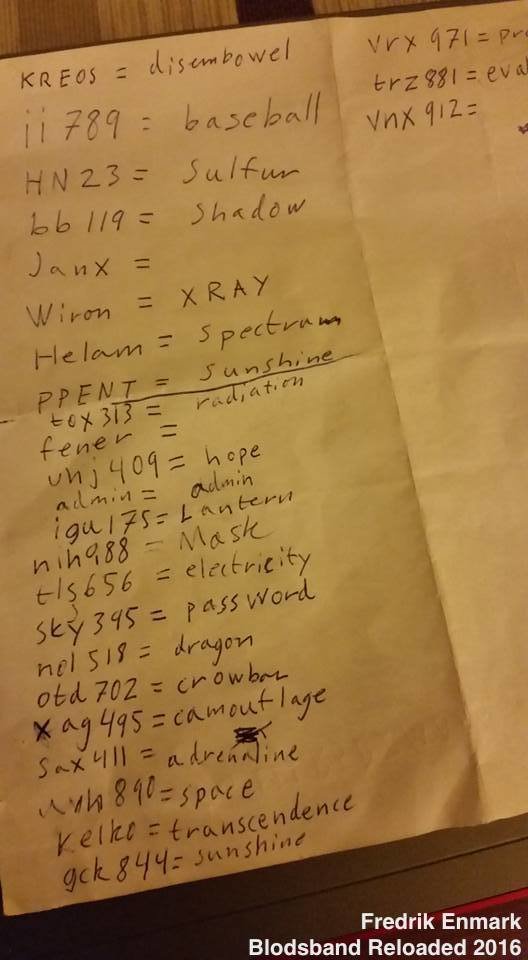 KREOS = disembowel
jj789 = baseball
HN23 = Sulfur
bb119 = Shadow
Janx =
Wiron = XRAY
Helam = Spectrum
PPENT = Sunshine
tox313 = radiation
fener =
vnj409 = hope
admin = admin
igu175 = Lantern
nih988 = Mask
tls656 = electricity
sky395 = password
nol518 = dragon
otd702 = crowbar
X ag495 = camouflage
sax411 = adrenaline
890 = space
Kelko = transcendence
gck844 = sunshine
vrx971 =
trz881 =
vnx912 =
Fredrik Enmark
Blodsband Reloaded 2016